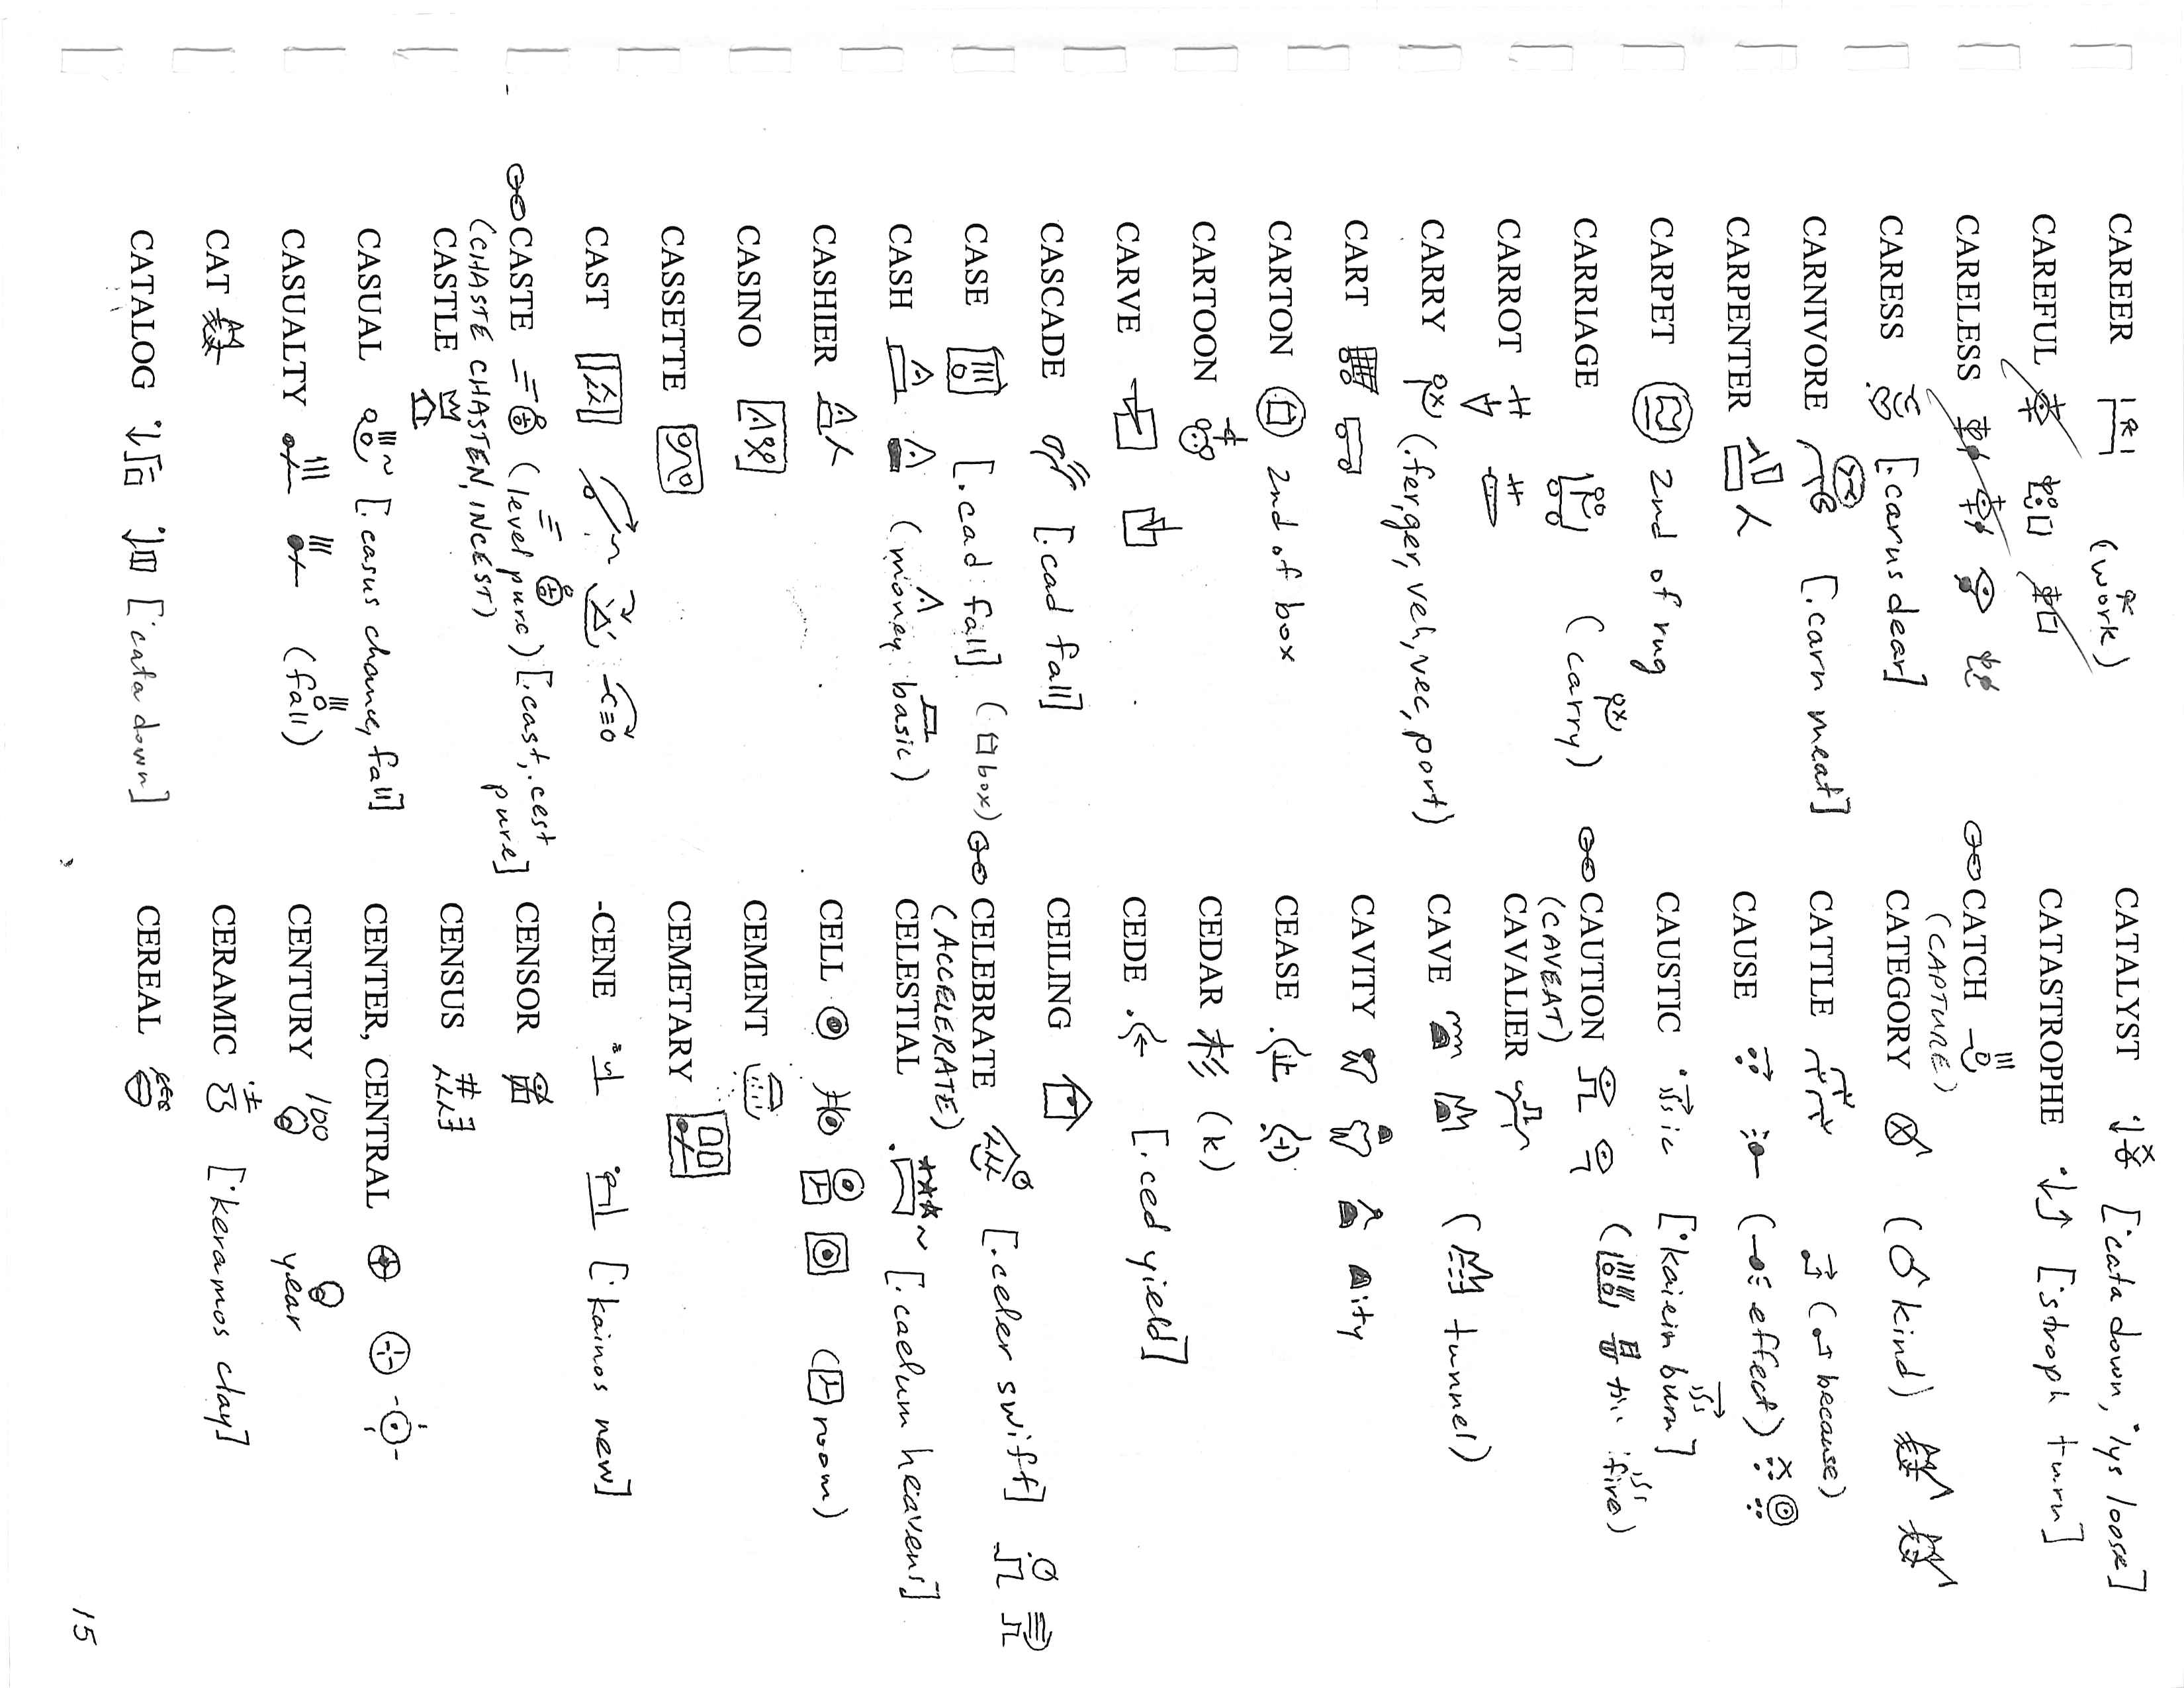 CAREER (work)
CAREFUL
CARELESS
CARESS [.carus dear]
CARNIVORE [.carn meat]
CARPENTER
CARPET 2nd of rug
CARRIAGE (carry)
CARROT
CARRY (.fer, ger, veh, vec, port)
CART
CARTON 2nd of box
CARTOON
CARVE
CASCADE [.cad fall]
CASE [.cad fall] (box)
CASH (money basic)
CASHIER
CASINO
CASSETTE
CAST
CASTE (level pure) [.cast, .cest pure]
(CHASTE CHASTEN, INCEST)
CASTLE
CASUAL [.casus chance, fall]
CASUALTY (fall)
CAT
CATALOG [˙cata down]
CATALYST [˙cata down, ˙lys loose]
CATASTROPHE [˙stroph turn]
CATCH
(CAPTURE)
CATEGORY (kind)
CATTLE
(because)
CAUSE (effect)
CAUSTIC ic [˙kaiein burn]
CAUTION (fire)
(CAVEAT)
CAVALIER
CAVE (tunnel)
CAVITY ity
CEASE
CEDAR (k)
CEDE [.ced yield]
CEILING
CELEBRATE [.celer swift]
(ACCELERATE)
CELESTIAL [.caelum heavens]
CELL (room)
CEMENT
CEMETARY
-CENE [˙kainos new]
CENSOR
CENSUS #
CENTER, CENTRAL
CENTURY 100 year
CERAMIC [˙keramos clay]
CEREAL
15